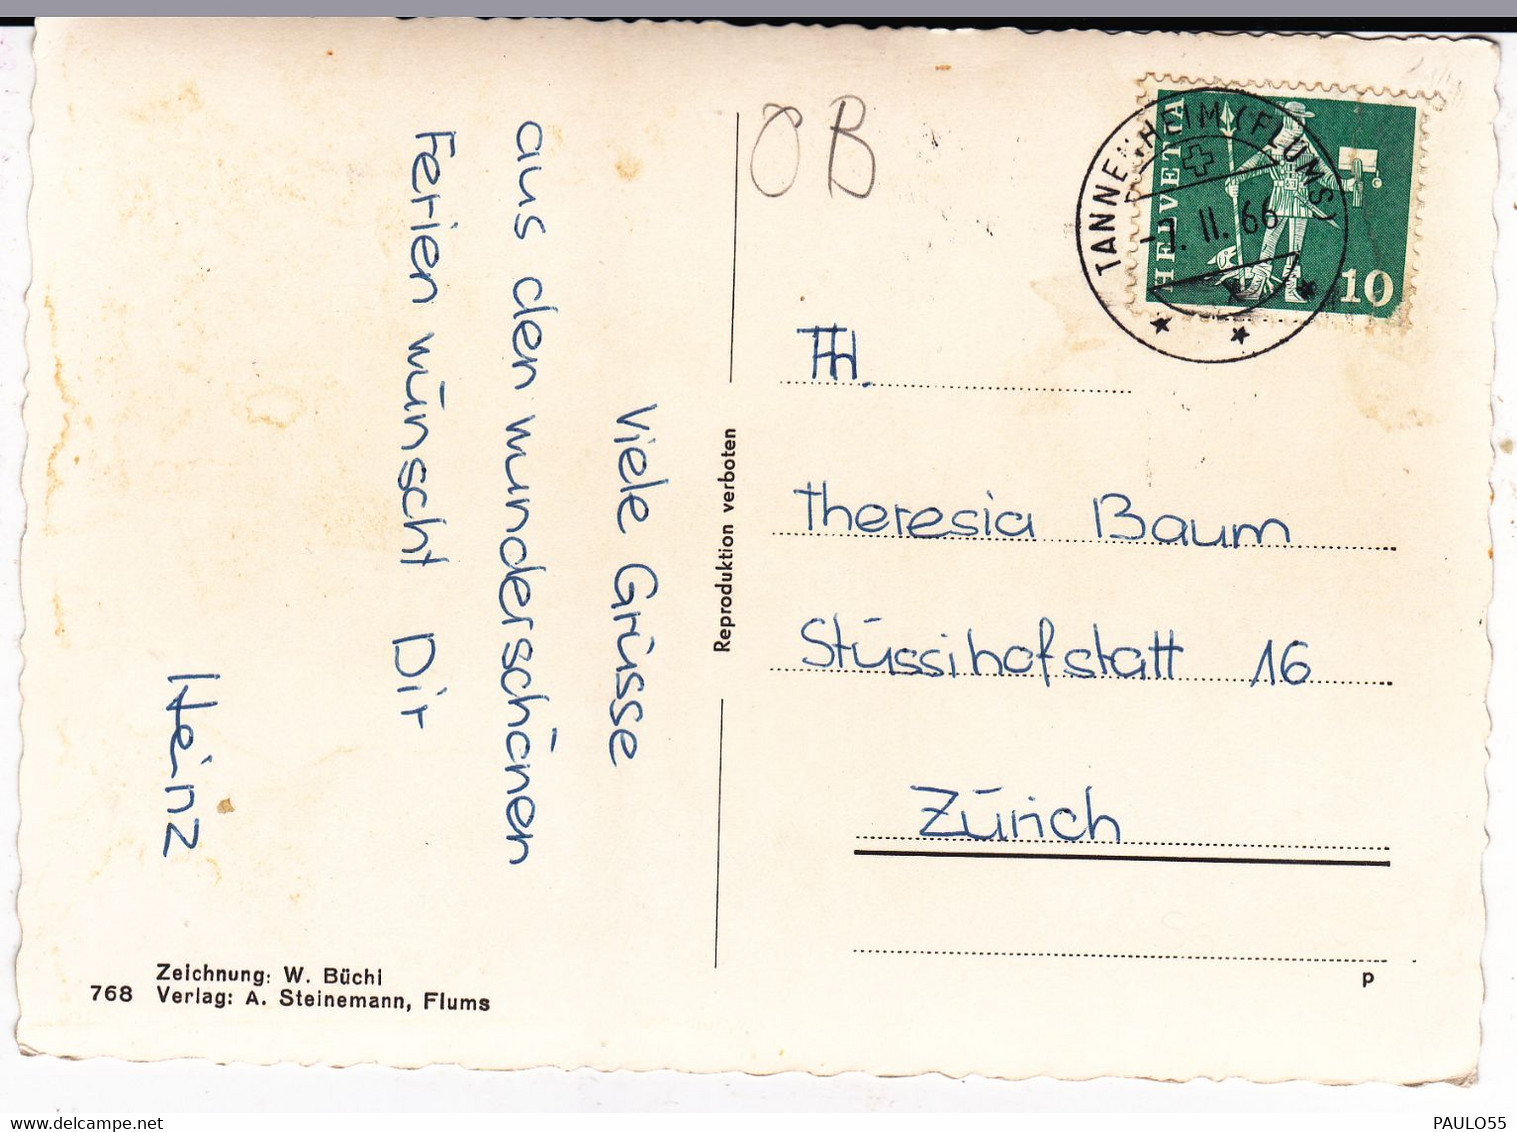 Viele Grüsse
aus den wunderschönen
Ferien wünscht Dir
Heinz
Zeichnung: W. Büchi
768 Verlag: A. Steinemann, Flums
Reproduktion verboten
TANNENHEIM (FLUMS)
-1. II. 66
HELVETIA
10
Theresia Baum
Stüssihofstatt 16
Zürich
p
www.delcampe.net
PAULO55